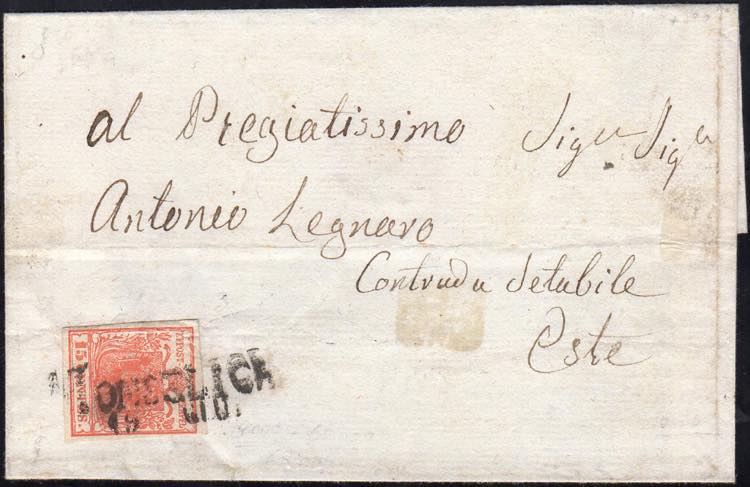 al Pregiatissimo Sigr Sigr
Antonio Legnaro
Contrada Setabile
Este
15 CENTES.
MONSELICE
19 GIU